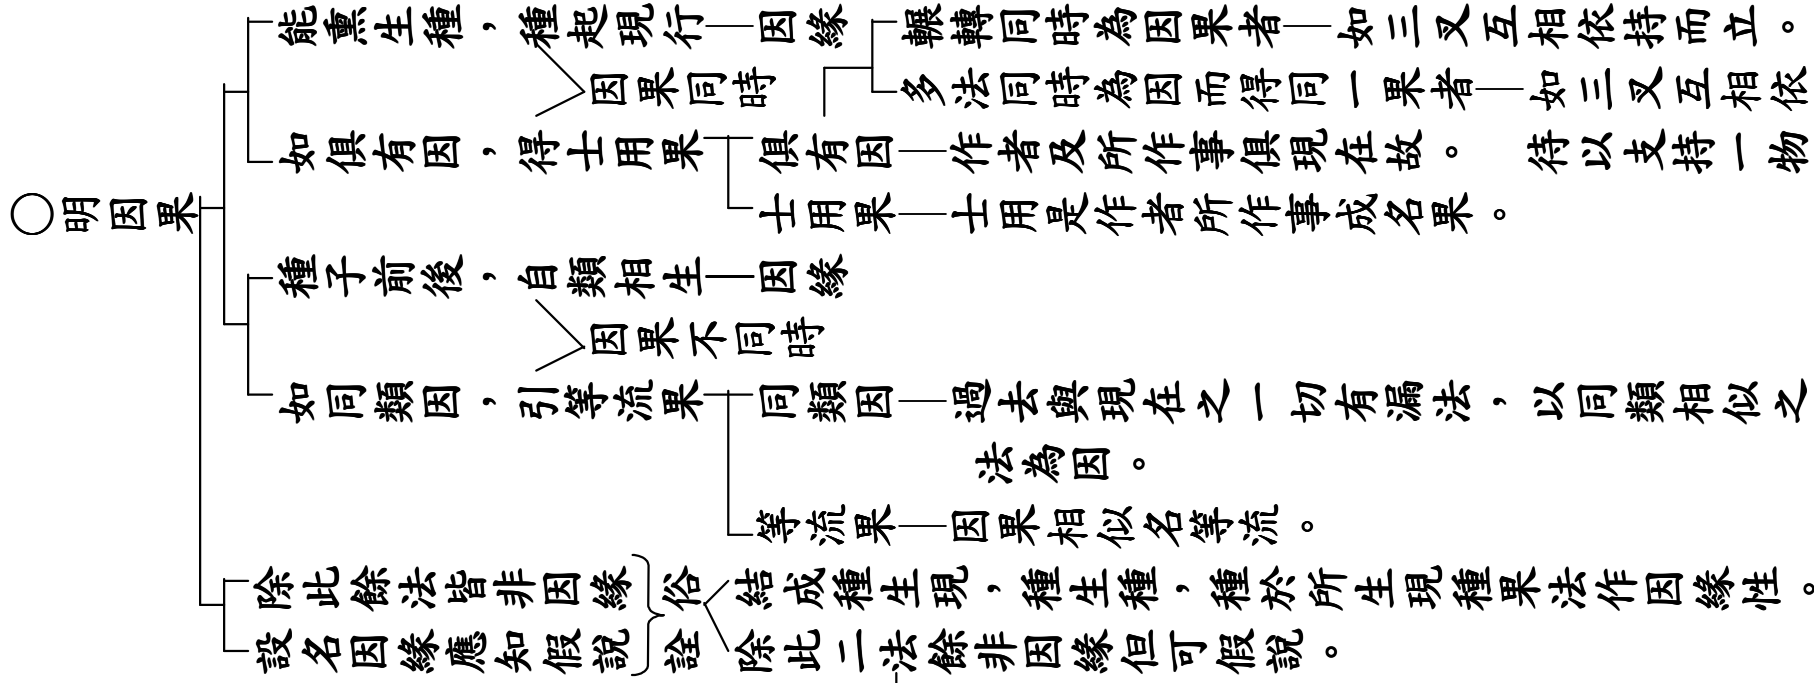 ○明因果
能熏生種，種起現行—因緣
因果同時
如俱有因，得士用果
俱有因—作者及所作事俱現在故。
輾轉同時為因果者—如三叉互相依持而立。
多法同時為因而得同一果者—如三叉互相依
待以支持一物
士用果—士用是作者所作事成名果。
種子前後，自類相生—因緣
因果不同時
如同類因，引等流果
同類因—過去與現在之一切有漏法，以同類相似之
法為因。
等流果—因果相似名等流。
除此餘法皆非因緣
設名因緣應知假說
俗詮
結成種生現，種生種，種於所生現種果法作因緣性。
除此二法餘非因緣但可假說。